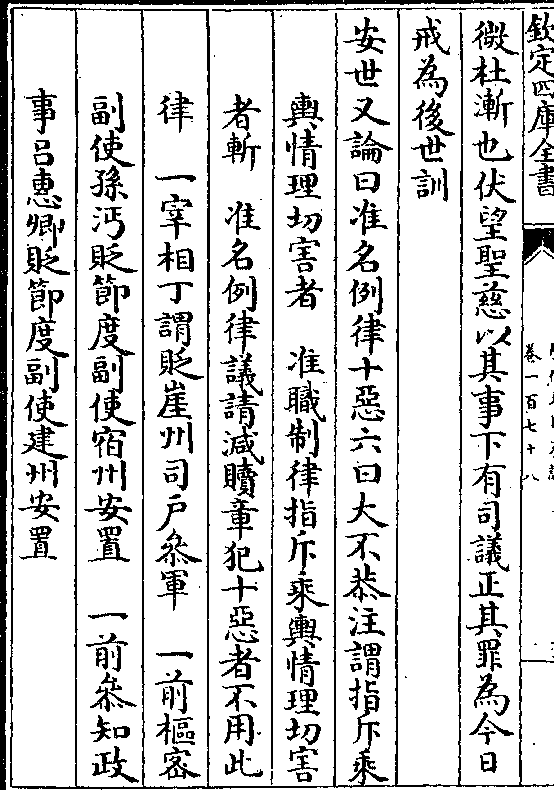 欽定四庫全書
卷一百七十八
微杜漸也伏望聖慈以其事下有司議正其罪為今日
戒為後世訓
安世又論曰准名例律十惡六曰大不恭注謂指斥乘
輿情理切害者　准職制律指斥乘輿情理切害
者斬　准名例律議請減贖章犯十惡者不用此
律　一宰相丁謂貶崖州司戶叅軍　一前樞密
副使孫沔貶節度副使宿州安置　一前叅知政
事呂惠卿貶節度副使建州安置